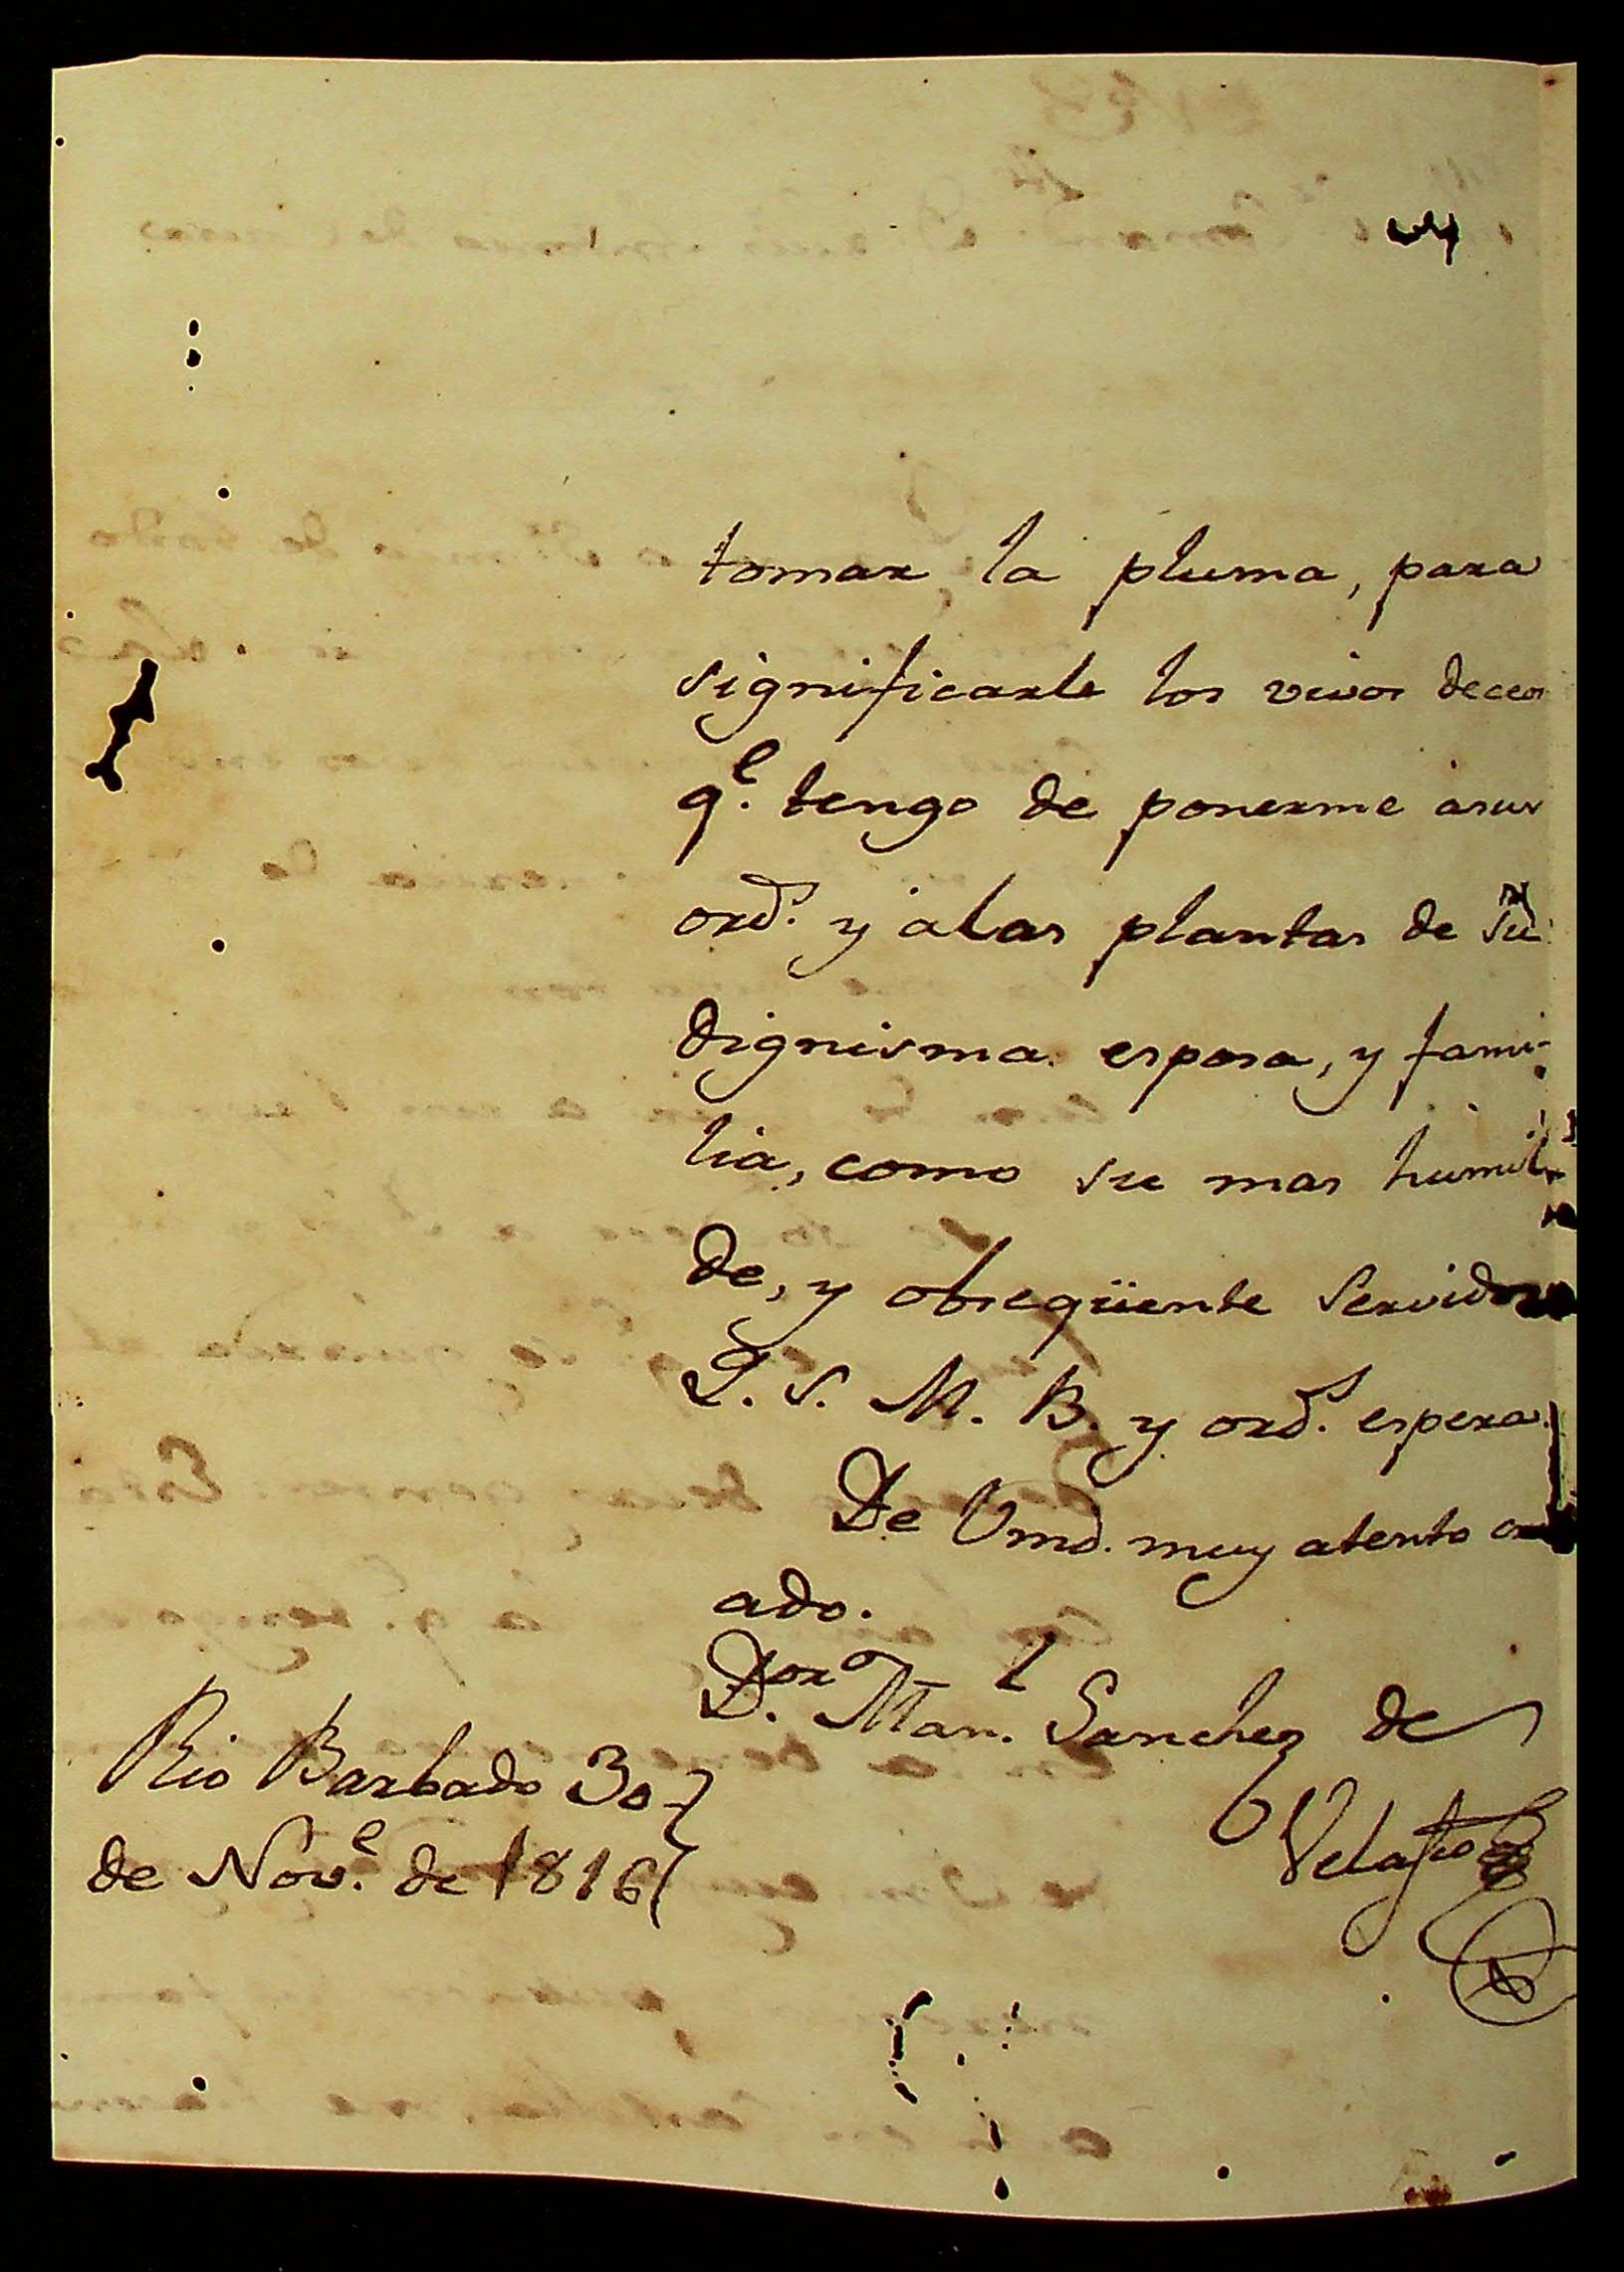 tomar la pluma, para
significarle los vivos deceos
q.e tengo de ponerme asus
ord.s y alas plantas de su
dignisma esposa, y fami-
lia, como su mas humil
de, y obseqüente Servidor
Q. S. M. B. y ord.s espera
De Vmd. muy atento cri
ado.
D.or Man.l Sanchez de
Velasco
Rio Barbado 30
de Nov.e de 1816